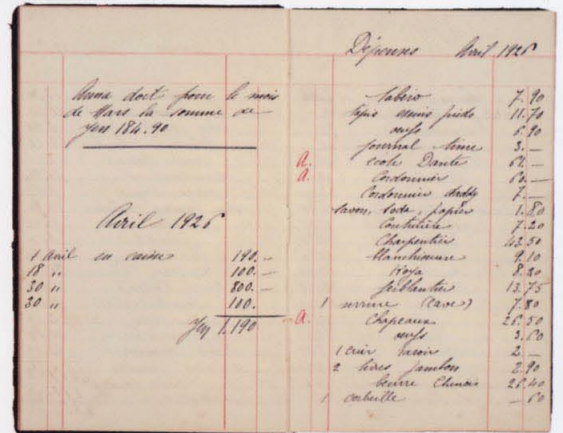 Anna doit pour le mois
de Mars la somme de
Yen 184.90
Avril 1926
1 Avril en caisse 190.-
18 " 100.-
30 " 800.-
30 " 100.-
Yen 1.190
Dépenses Avril 1926
7.90
tapis 11.70
oeufs 6.90
journal 3.-
A. ecole Dante 64.-
A. Cordonnier 60.-
Cordonnier daddy 7.-
savon, soda, papier 1.80
Couturière 7.20
Charpentier 42.50
blanchisseuse 9.10
8.20
ferblantier 13.75
1 serrure (cave) 7.80
A. Chapeaux 26.50
oeufs 3.60
1 cuir rasoir 2.-
2 livres jambon 2.90
beurre Chinois 26.40
1 corbeille -60